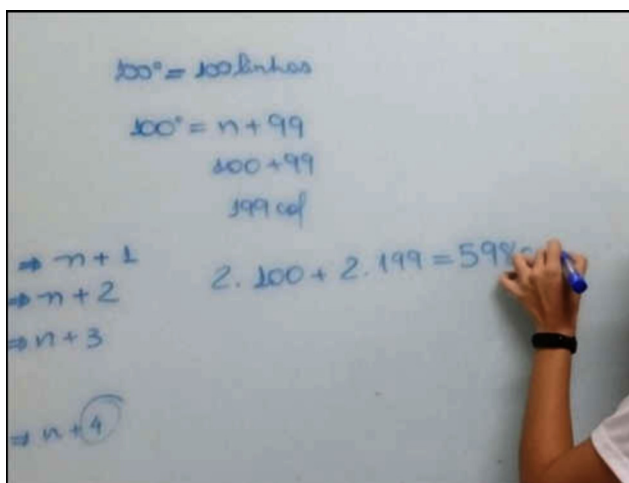 100° = 100 linhas
100° = n + 99
100 + 99
199 col
⇒ n + 1
⇒ n + 2
⇒ n + 3
⇒ n + 4
2. 100 + 2. 199 = 598